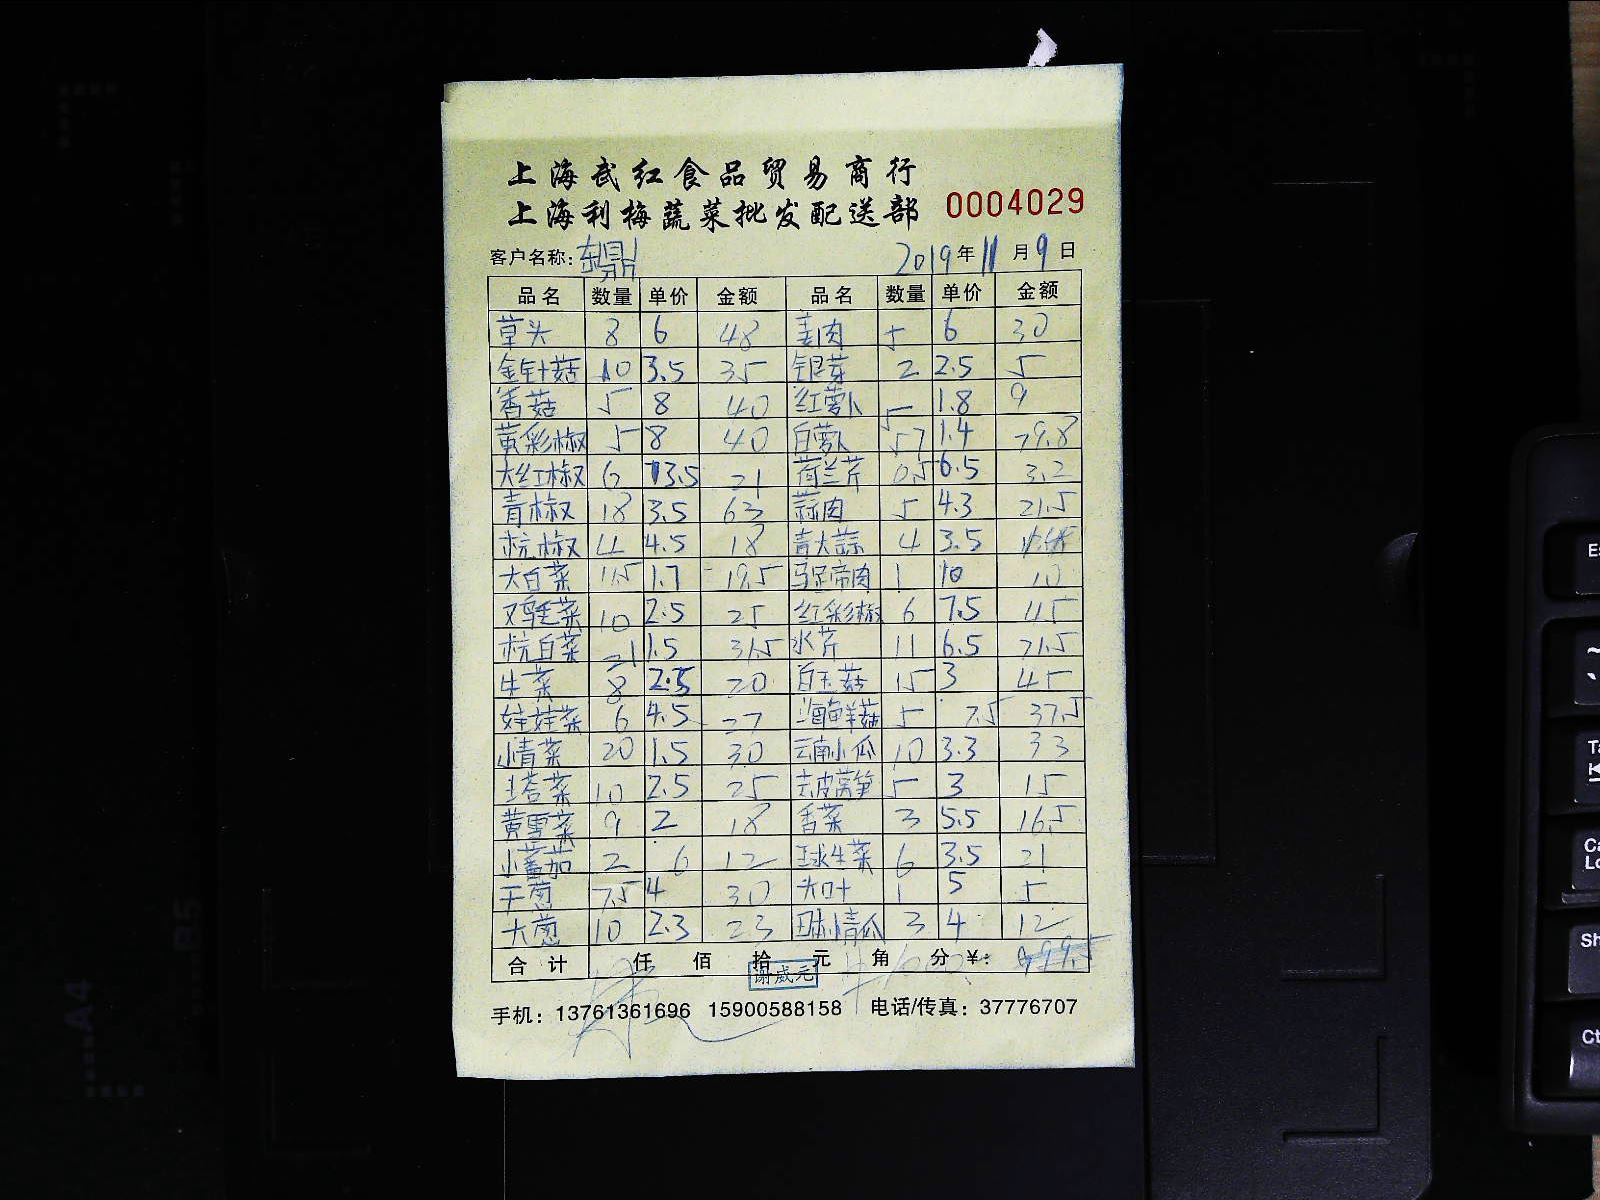 上海武红食品贸易商行
上海利梅蔬菜批发配送部 0004029
客户名称: 东鼎 2019年11月9日
品名 数量 单价 金额 品名 数量 单价 金额
草头 8 6 48 姜肉 5 6 30
金针菇 10 3.5 35 银芽 2 2.5 5
香菇 5 8 40 红萝卜 5 1.8 9
黄彩椒 5 8 40 白萝卜 57 1.4 79.8
大红椒 6 3.5 21 荷兰芹 0.5 6.5 3.2
青椒 18 3.5 63 蒜肉 5 4.3 21.5
杭椒 4 4.5 18 青大蒜 4 3.5
大白菜 11.5 1.7 19.5 马蹄肉 1 10 10
又鸡毛菜 10 2.5 25 红彩椒 6 7.5 45
杭白菜 21 1.5 31.5 水芹 11 6.5 71.5
生菜 8 2.5 20 白玉菇 15 3 45
娃娃菜 6 4.5 27 海鲜菇 5 7.5 37.5
小青菜 20 1.5 30 云南小瓜 10 3.3 33
塔菜 10 2.5 25 去皮莴笋 5 3 15
黄雪菜 9 2 18 香菜 3 5.5 16.5
小蕃茄 2 6 12 球生菜 6 3.5 21
干葱 7.5 4 30 大叶 1 5 5
大葱 10 2.3 23 日本小青瓜 3 4 12
合计 仟 佰 拾 元 角 分 ¥: 999.5
谢威元
手机: 13761361696 15900588158 电话/传真: 37776707
A4
B5